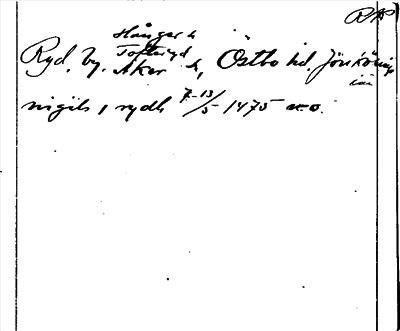 RAP
Hånger h
Ryd, by. Tofteryd
Åker h, Östbo hd. Jönköpings
län
nigils, rydh 7-13/5 1475 u.o.